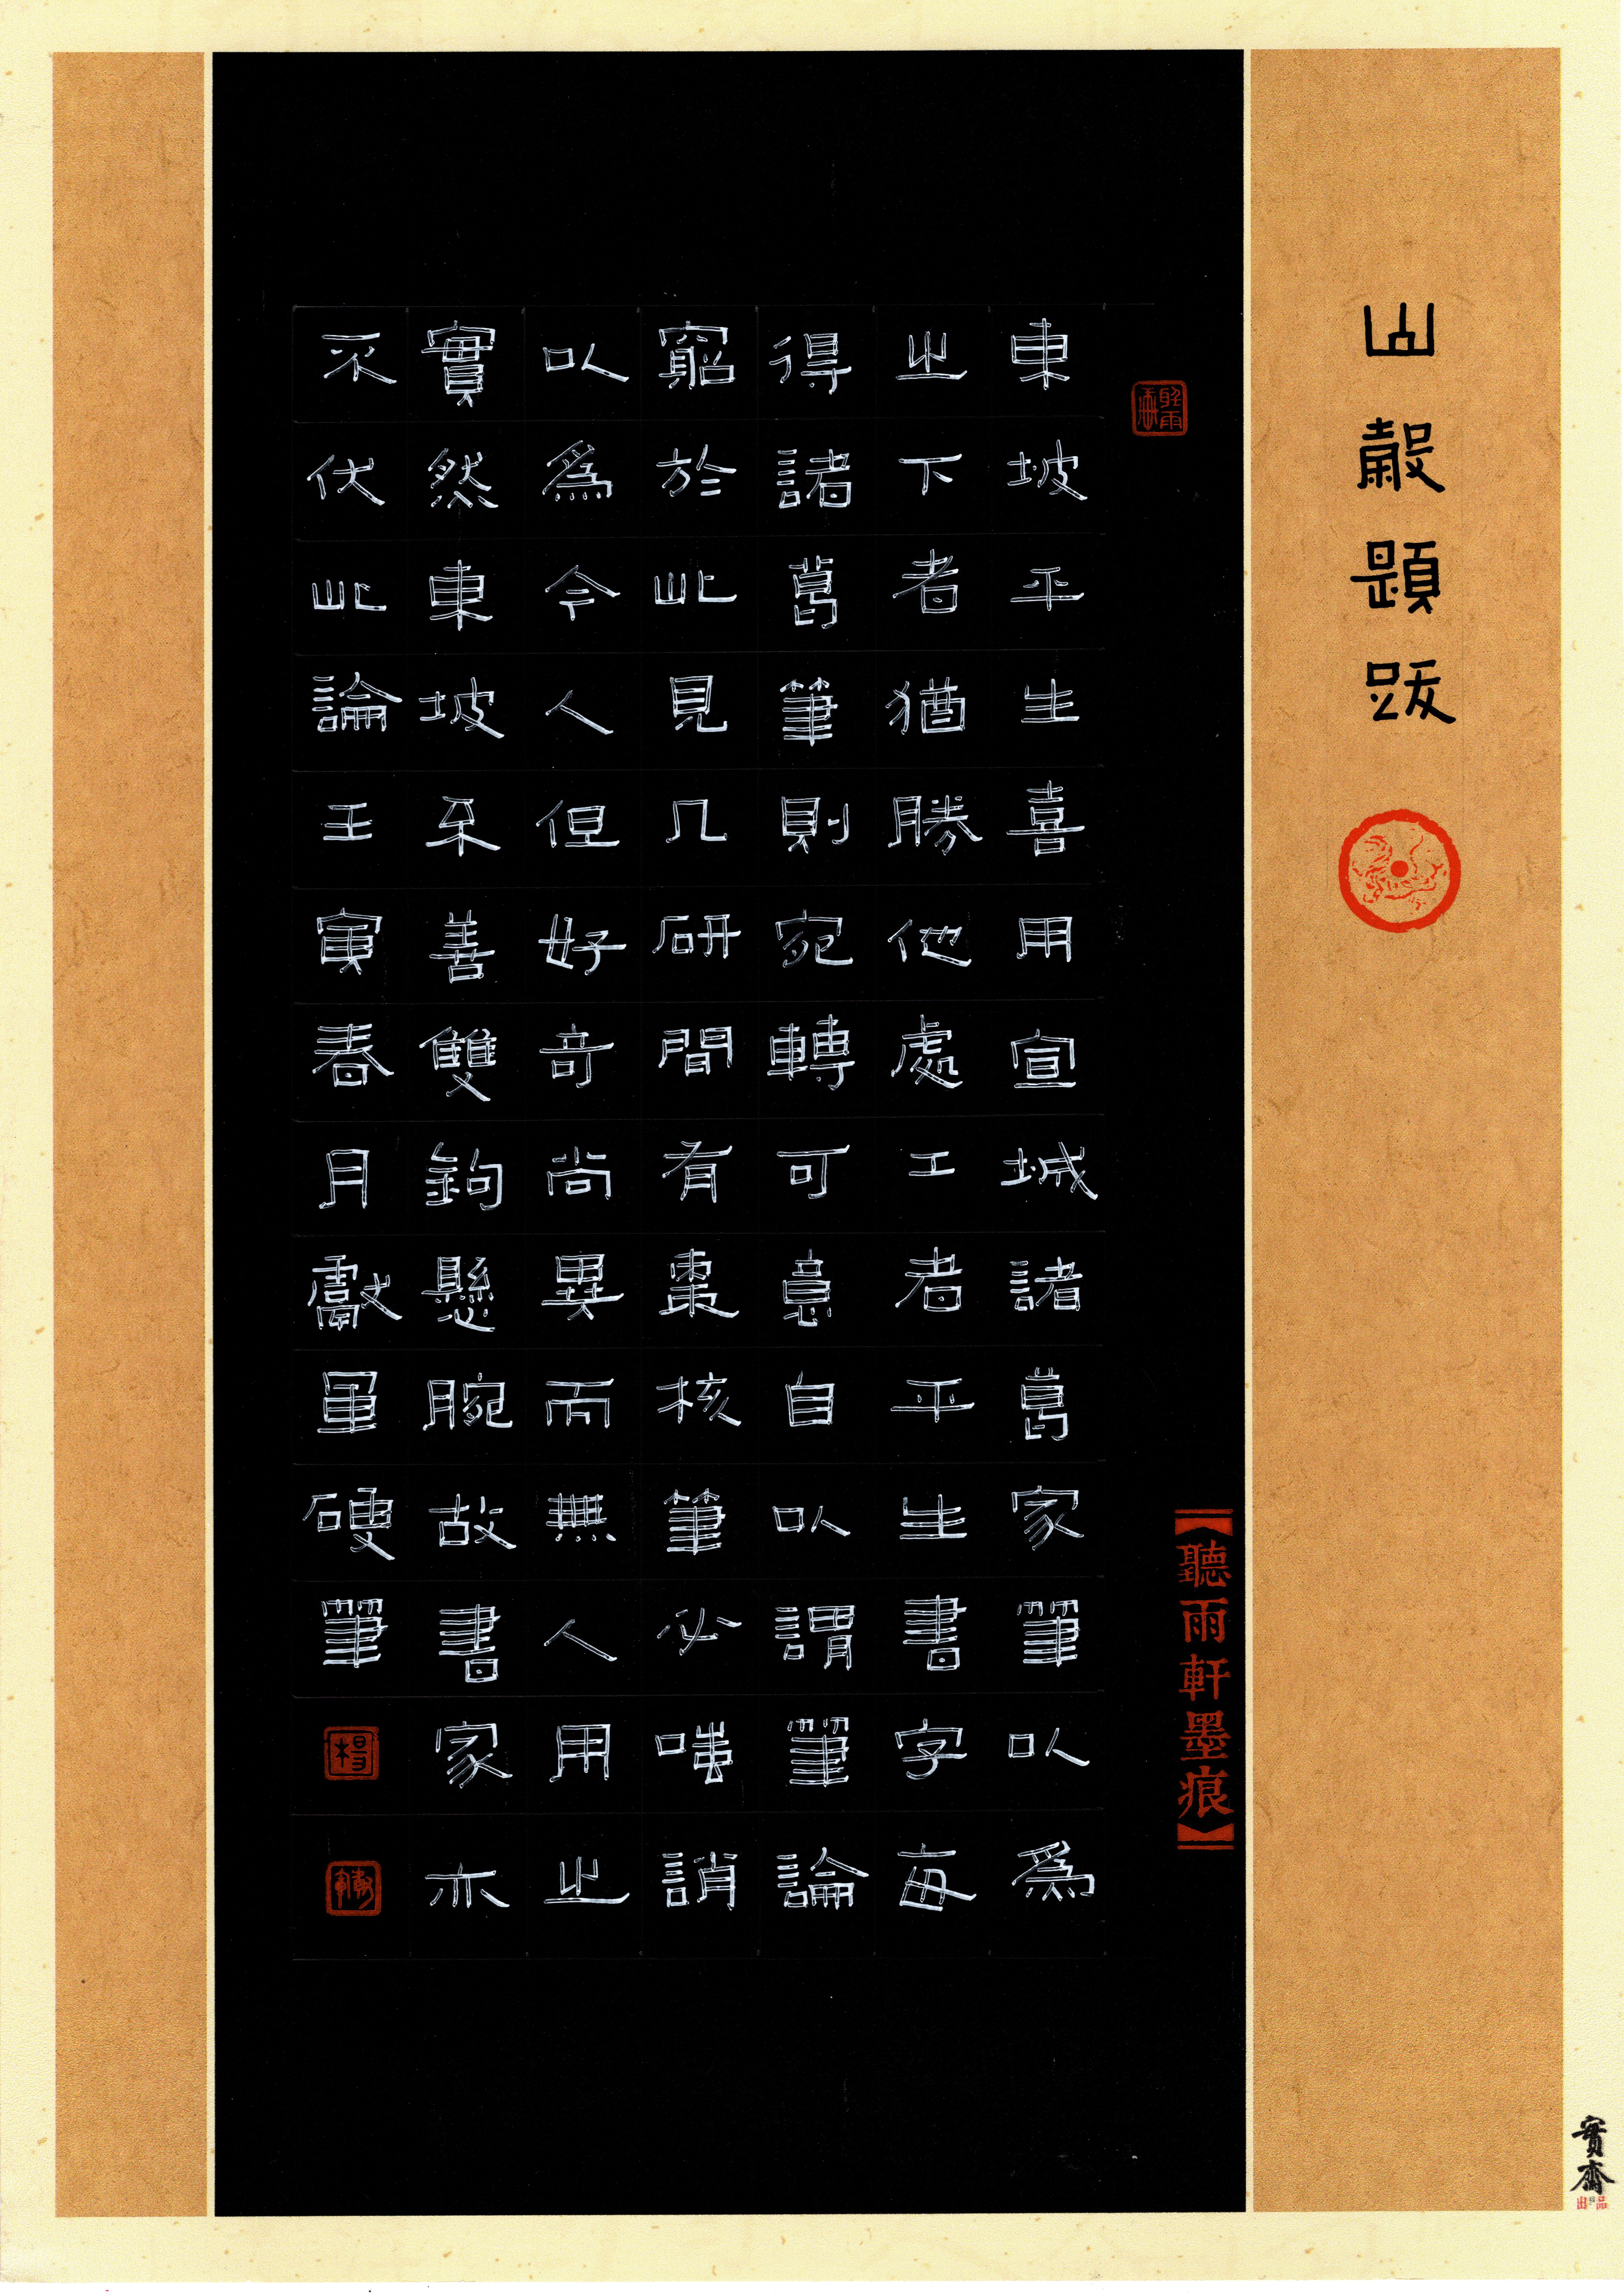 山穀題跋
【聽雨軒墨痕】
東坡平生喜用宣城諸葛家筆以爲
之下者猶勝他處工者平生書字每
得諸葛筆則宛轉可意自以謂筆論
窮於此見几研間有棗核筆必嗤誚
以爲今人但好奇尚異而無人用之
實然東坡不善雙鉤懸腕故書家亦
不伏此論壬寅春月獻軍硬筆
楊
實齋
出品